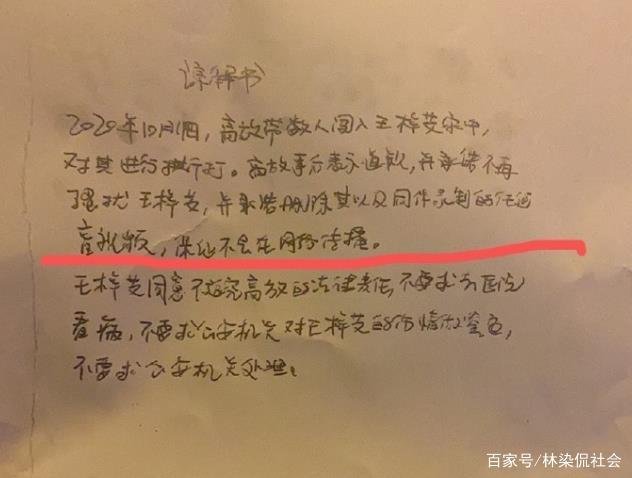 谅解书
2020年10月1日,高放带数人闯入王梓芠家中,
对其进行拼行打。高放事后表示道歉,并承诺不再
骚扰王梓芠,并承诺删除其以及同伴录制的任何
音视频,保证不会在网络传播。
王梓芠同意不追究高放的法律责任,不要求去医院
看病,不要求公安机关对王梓芠的伤情做鉴定,
不要求公安机关处理。
百家号/林染侃社会